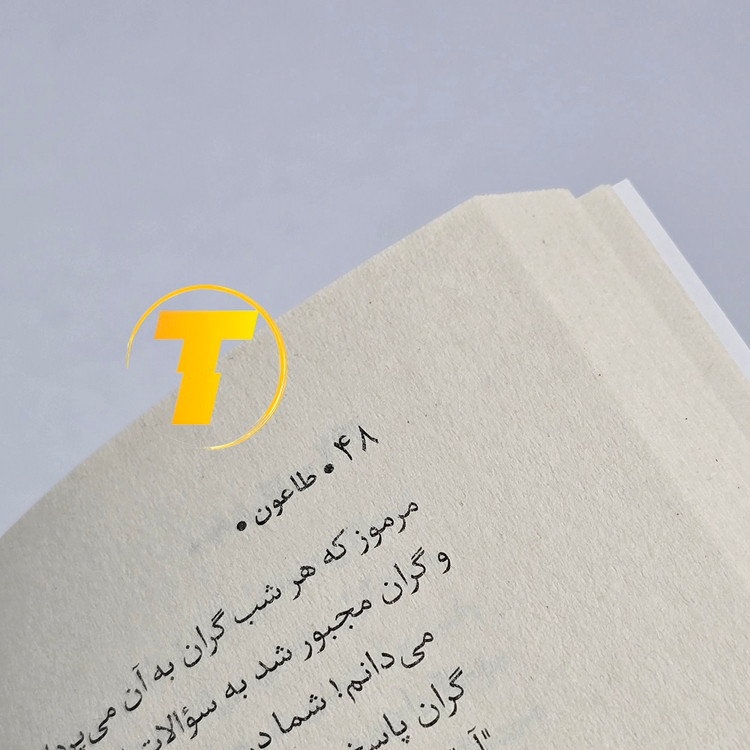 T
۴۸ • طاعون •
مرموز که هر شب گران به آن می‌پردا
و گران مجبور شد به سؤالات
می‌دانم! شما در
گران پاسخ